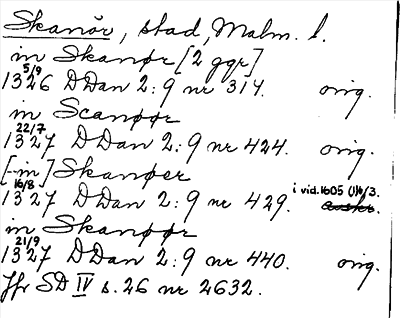 Skanör, stad, Malm. l.
in Skanør [2 ggr]
1326 5/9 DDan 2:9 nr 314. orig.
in Scanøør
1327 22/7 DDan 2:9 nr 424. orig.
[-in] Skanøer
1327 16/8 DDan 2:9 nr 429. i vid. 1605
in Skanøør
1327 21/9 DDan 2:9 nr 440. orig.
Jfr SD IV s. 26 nr 2632.